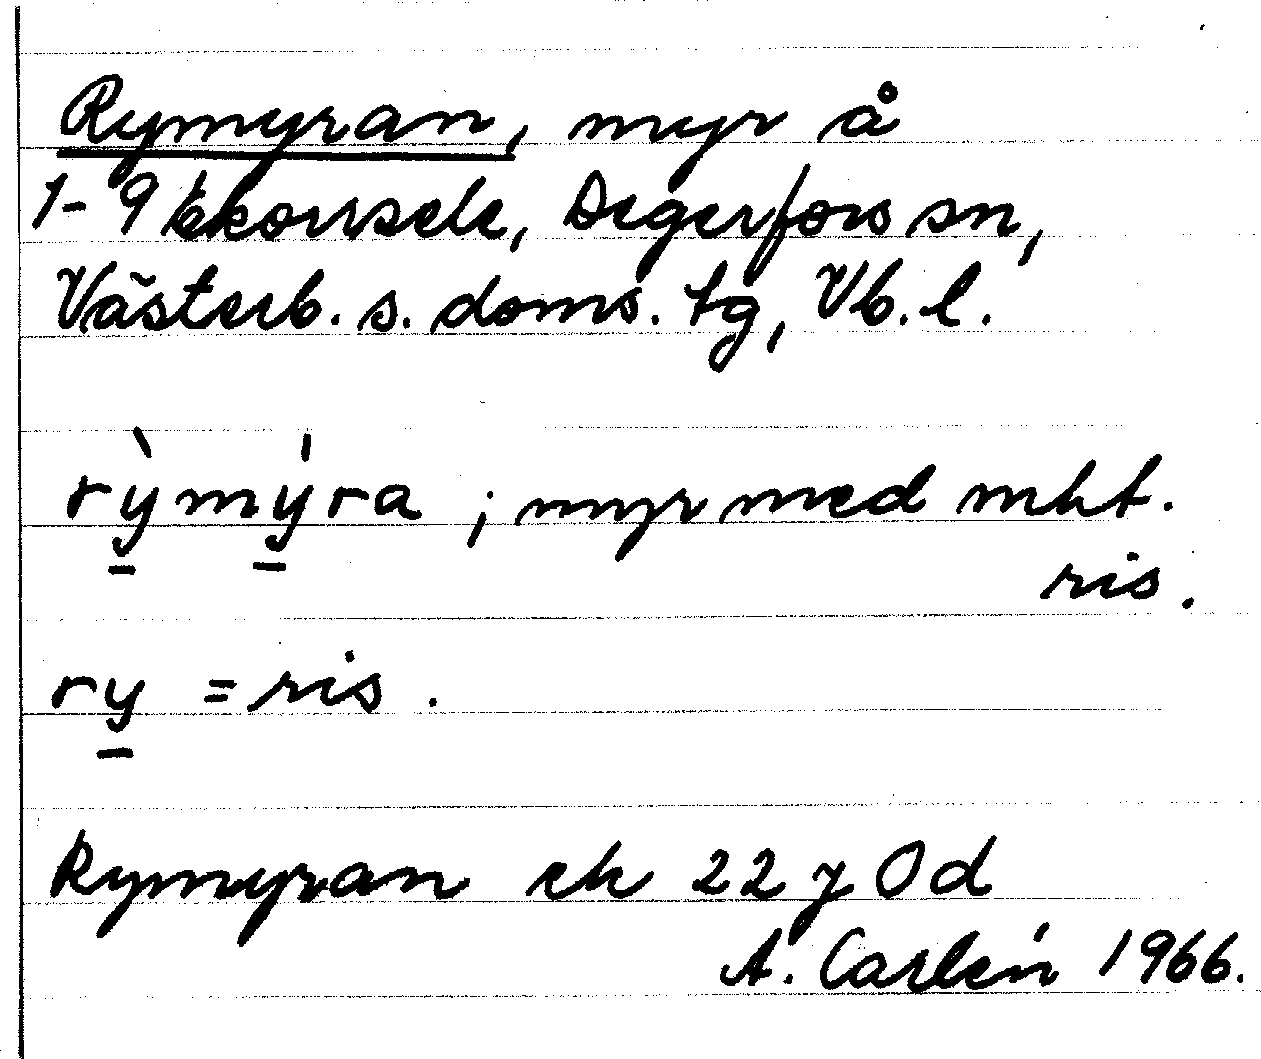 Rymyran, myr å
1-9 Ekorrsele, Degerfors sn,
Västerb. s. doms. tg, Vb. l.
rỳmýra ; myr med mkt.
ris.
ry = ris .
Rymyran ek 22 J 0 d
A. Carlén 1966.